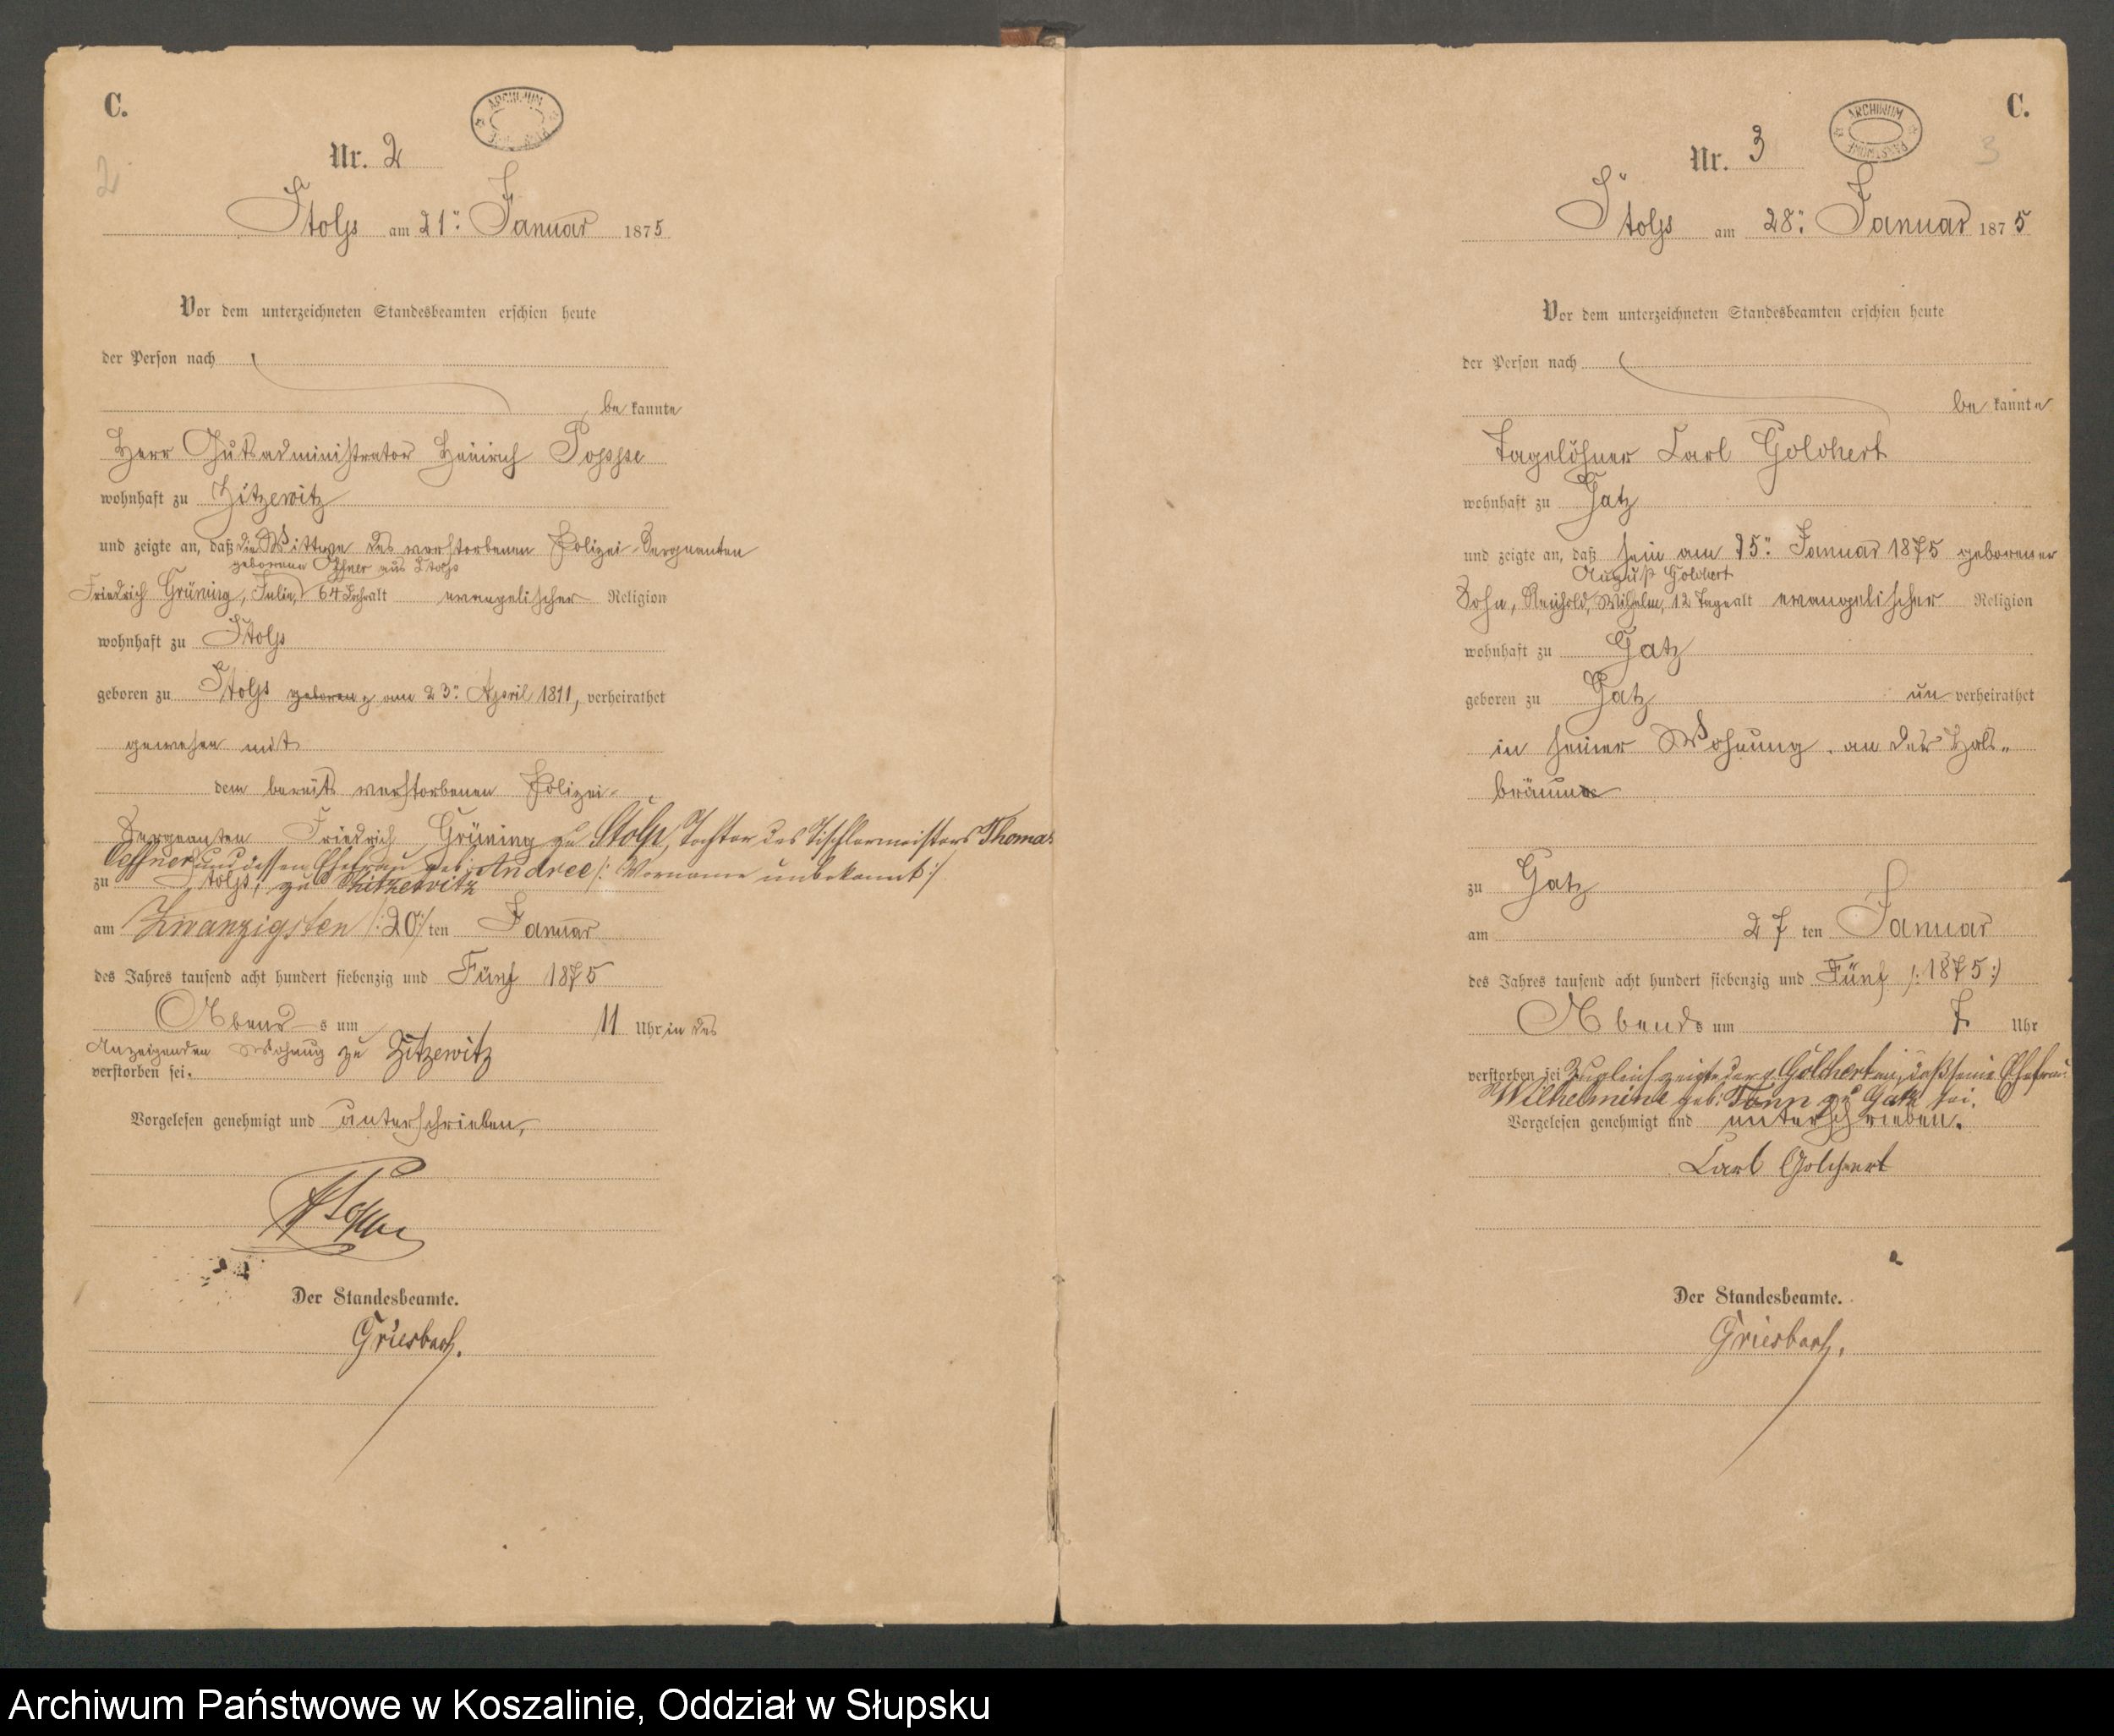 C.
ARCHIWUM
2
Nr. 2
Stolp am 21ten Januar 1875
Vor dem unterzeichneten Standesbeamten erschien heute
der Person nach
bekannte
Herr Gutsadministrator Heinrich Poppe
wohnhaft zu Zitzewitz
und zeigte an, daß die Wittwe des verstorbenen Polizei-Sergeanten
geborene aus Stolp
Friedrich Grüning, Julie, 64 Jahr alt evangelischer Religion
wohnhaft zu Stolp
geboren zu Stolp geboren am 23ten April 1811, verheirathet
gewesen mit
dem bereits verstorbenen Polizei-
Sergeanten Friedrich Grüning zu Stolp, Tochter des Tischlermeisters Thomas
Oeffner und dessen Ehefrau geb. Andree /: Vorname unbekannt :/
zu Stolp, zu Zitzewitz
am Zwanzigsten /: 20 :/ ten Januar
des Jahres tausend acht hundert siebenzig und Fünf 1875
Abends um 11 Uhr in des
Anzeigenden Wohnung zu Zitzewitz
verstorben sei.
Vorgelesen genehmigt und unterschrieben,
Poppe
Der Standesbeamte.
Griesbach.
C.
ARCHIWUM PAŃSTWOWE
3
Nr. 3
Stolp am 28ten Januar 1875
Vor dem unterzeichneten Standesbeamten erschien heute
der Person nach
bekannte
Tagelöhner Carl Golchert
wohnhaft zu Gatz
und zeigte an, daß sein am 15ten Januar 1875 geborener
August Golchert
Sohn, Reinhold, Wilhelm, 12 Tage alt evangelischer Religion
wohnhaft zu Gatz
geboren zu Gatz unverheirathet
in seiner Wohnung an der Hals-
bräune
zu Gatz
am 27ten Januar
des Jahres tausend acht hundert siebenzig und Fünf /: 1875 :/
Abends um 7 Uhr
verstorben sei Zugleich zeigte der p. Golchert an, daß seine Ehefrau
Wilhelmine geb. Tonn zu Gatz sei.
Vorgelesen genehmigt und unterschrieben.
Carl Golchert
Der Standesbeamte.
Griesbach.
Archiwum Państwowe w Koszalinie, Oddział w Słupsku